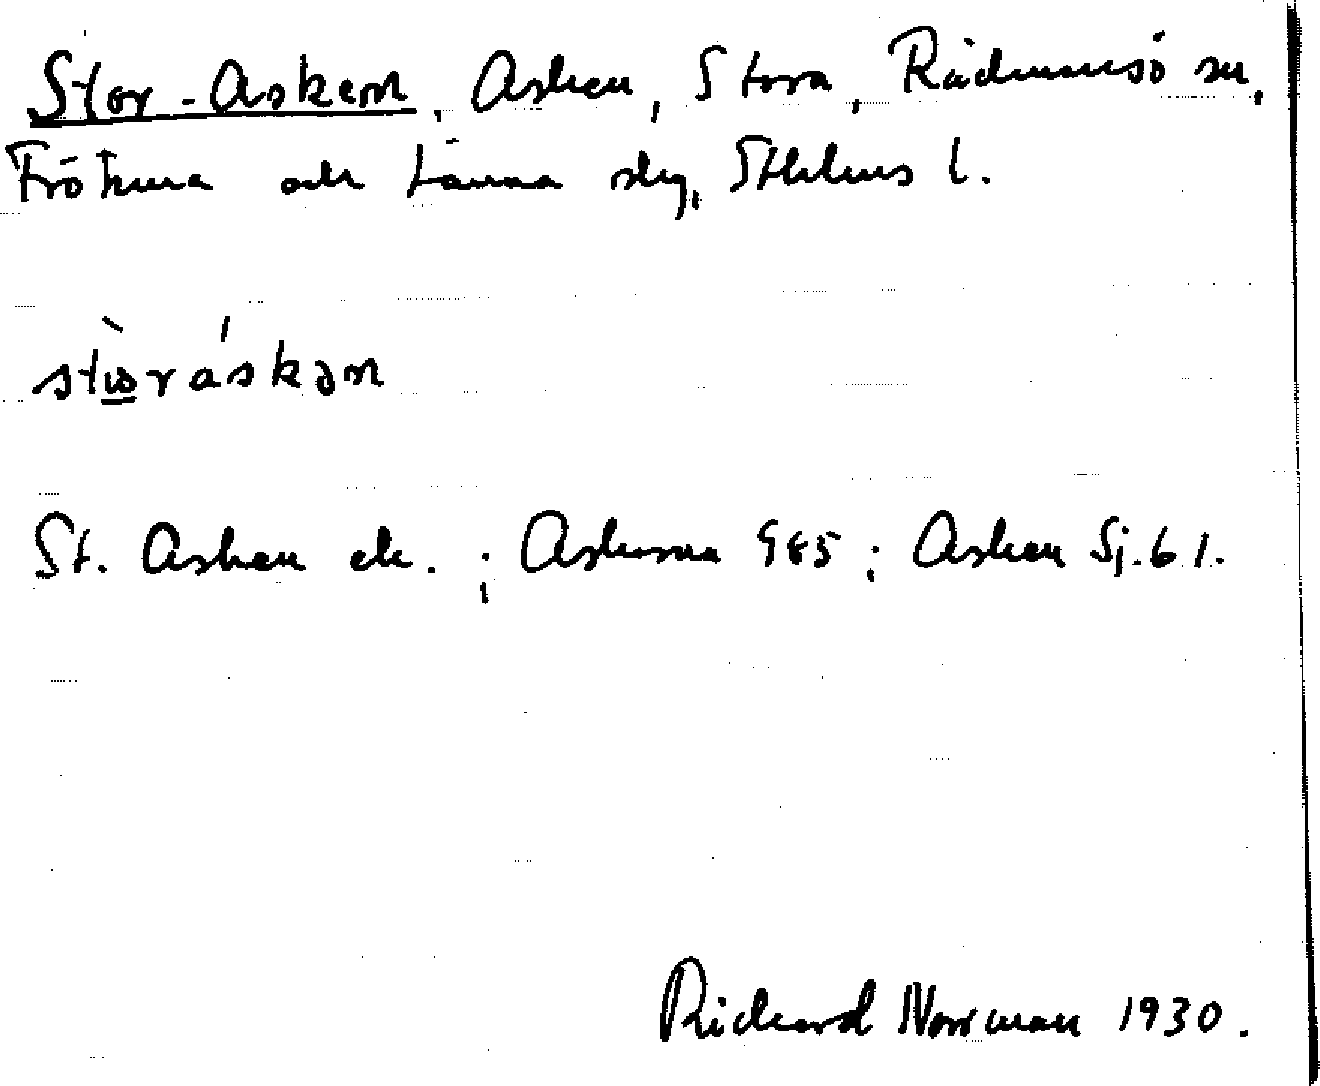 Stor-Asken, Asken, Stora, Rådmansö sn,
Frötuna och Länna slg, Sthlms l.
stωráskən
St. Asken ek. ; Askarna 985 ; Asken Sj. 61.
Rickard Norrman 1930.